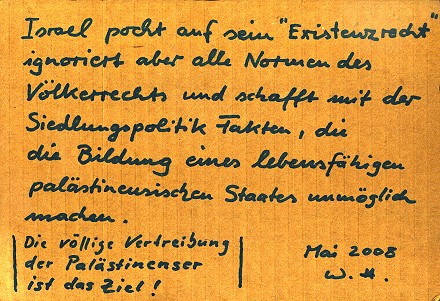 Israel pocht auf sein "Existenzrecht"
ignoriert aber alle Normen des
Völkerrechts und schafft mit der
Siedlungspolitik Fakten, die
die Bildung eines lebensfähigen
palästinensischen Staates unmöglich
machen.
Die völlige Vertreibung
der Palästinenser
ist das Ziel!
Mai 2008
W. H.